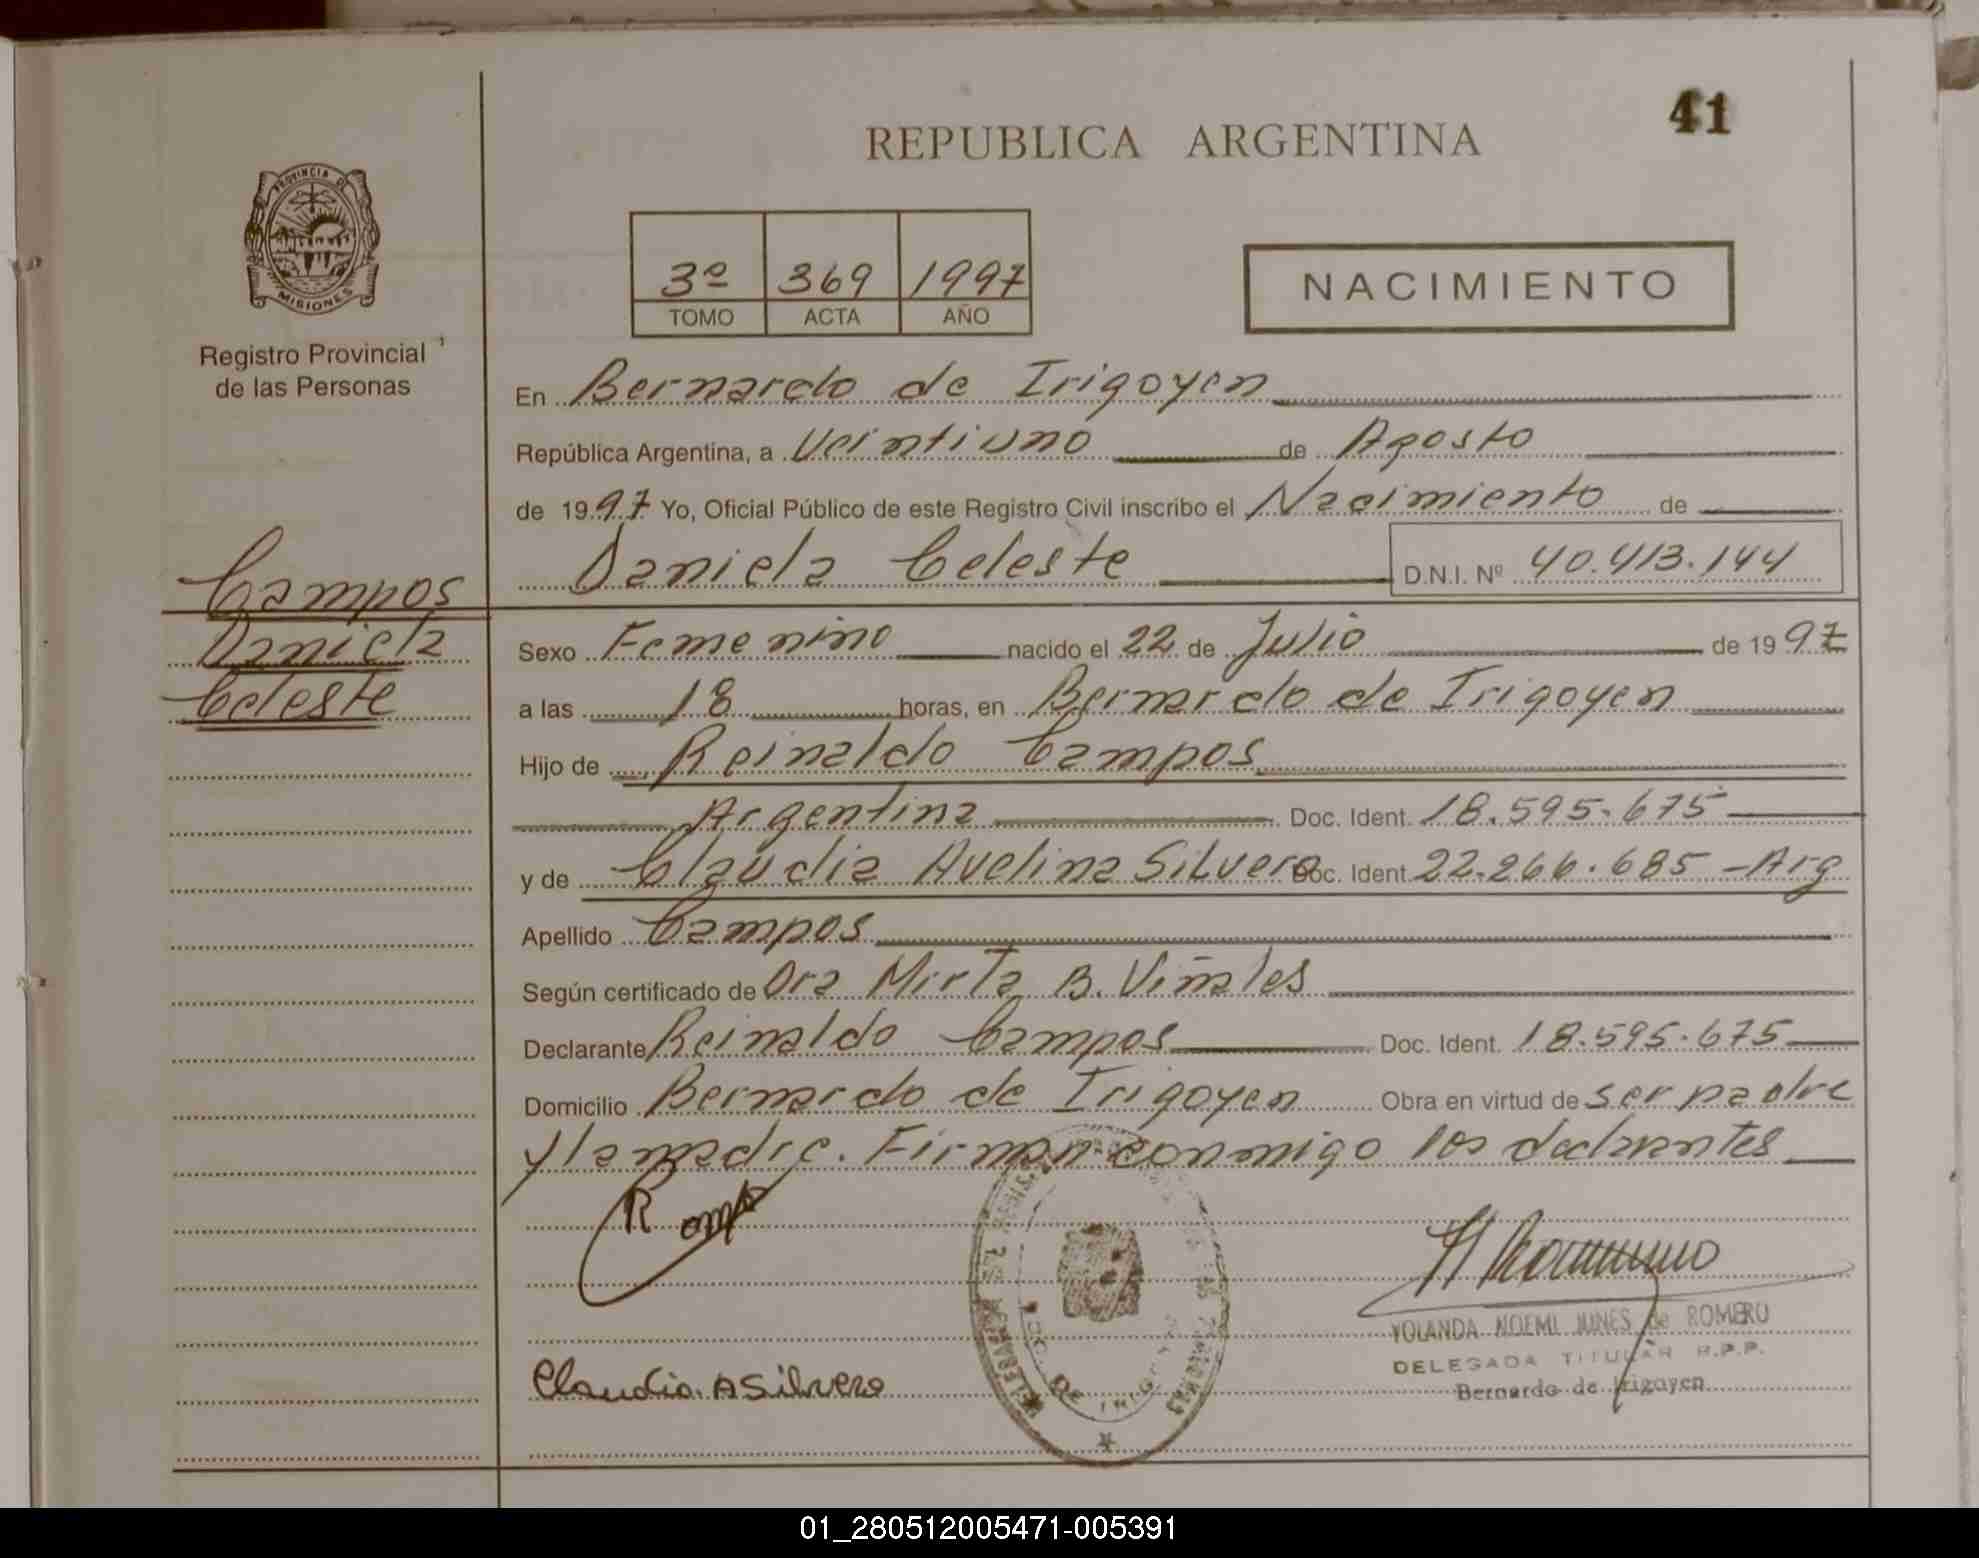 41
REPUBLICA ARGENTINA
PROVINCIA DE
MISIONES
Registro Provincial
de las Personas
3º 369 1997
TOMO ACTA AÑO
NACIMIENTO
En Bernardo de Irigoyen
República Argentina, a Veintiuno de Agosto
de 1997 Yo, Oficial Público de este Registro Civil inscribo el Nacimiento de
Daniela Celeste D.N.I. Nº 40.413.144
Campos
Daniela
Celeste
Sexo Femenino nacido el 22 de Julio de 1997
a las 18 horas, en Bernardo de Irigoyen
Hijo de Reinaldo Campos
Argentina Doc. Ident. 18.595.675
y de Claudia Avelina Silvero Doc. Ident. 22.266.685 - Arg
Apellido Campos
Según certificado de Dra Mirta B. Viñales
Declarante Reinaldo Campos Doc. Ident. 18.595.675
Domicilio Bernardo de Irigoyen Obra en virtud de ser padre
y la madre. Firman conmigo los declarantes
YOLANDA NOEMI NUNES de ROMERO
DELEGADA TITULAR R.P.P.
Bernardo de Irigoyen
Claudia A Silvero
01_280512005471-005391